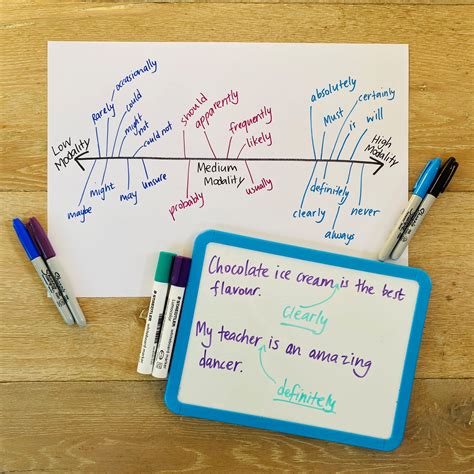 occasionally
Rarely
could
might not
could not
should
apparently
frequently
likely
absolutely
certainly
Must
is
will
Low Modality
Medium Modality
High Modality
maybe
might
may
unsure
probably
usually
clearly
definitely
never
always
Chocolate ice cream is the best
flavour.
clearly
My teacher is an amazing
dancer.
definitely
STAEDTLER
STAEDTLER